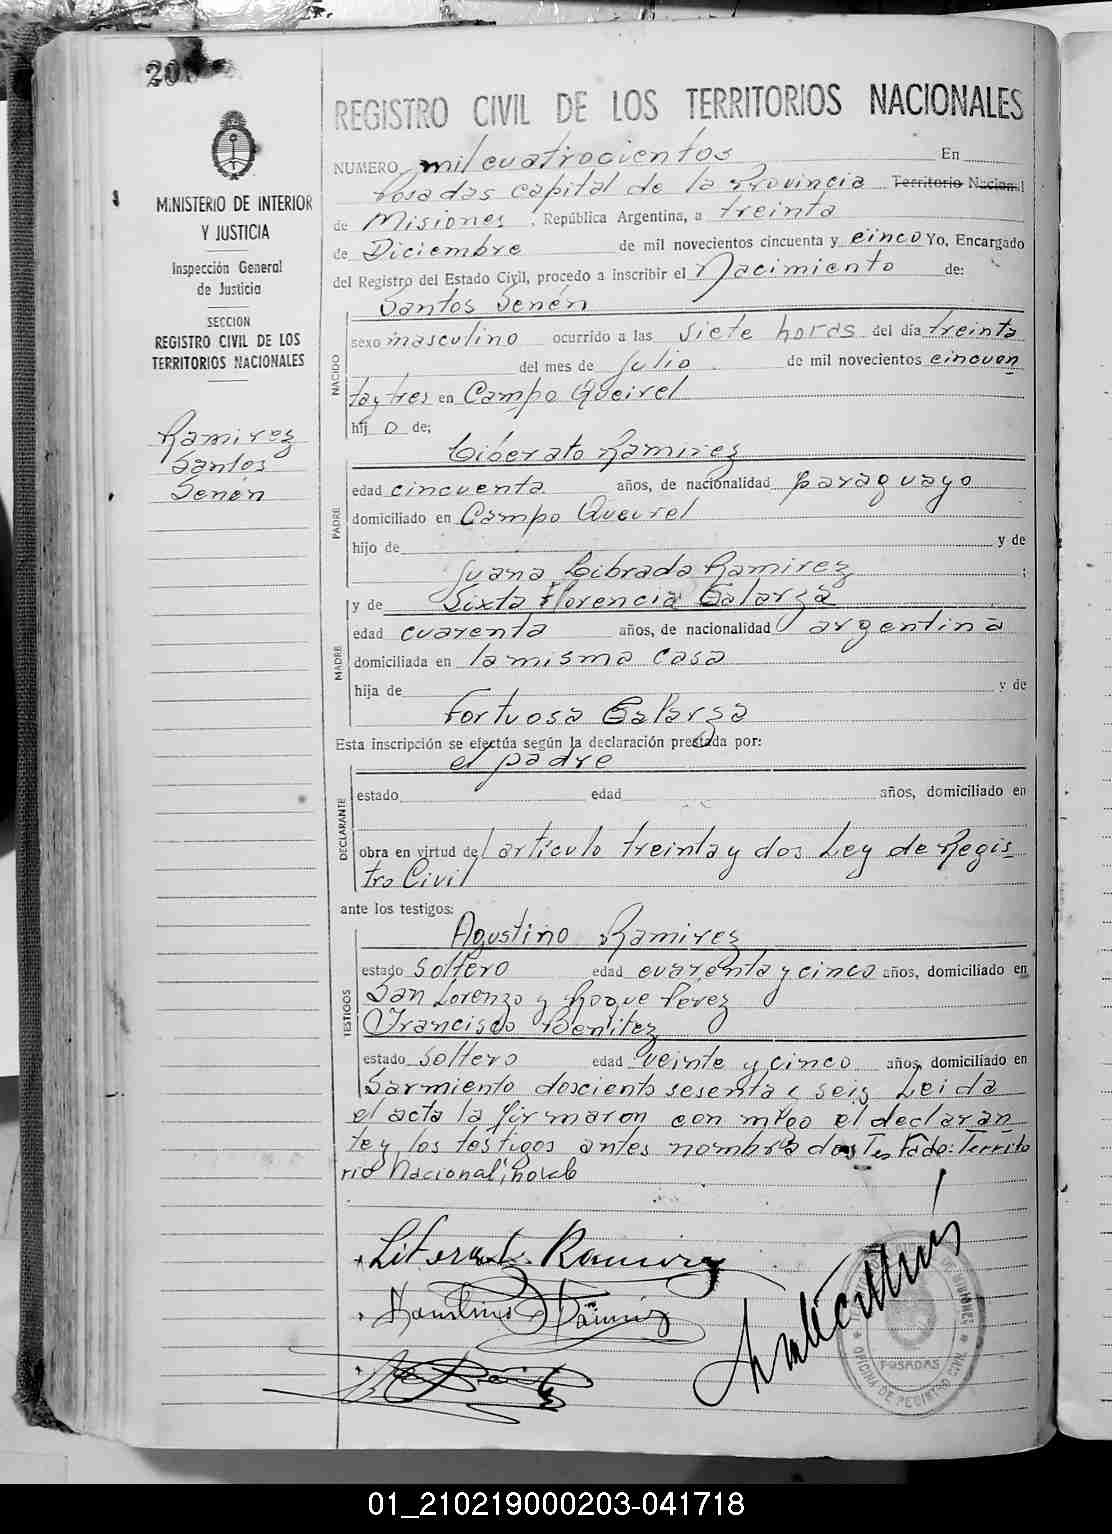 MINISTERIO DE INTERIOR
Y JUSTICIA
Inspección General
de Justicia
SECCION
REGISTRO CIVIL DE LOS
TERRITORIOS NACIONALES
Ramirez
Santos
Senén
REGISTRO CIVIL DE LOS TERRITORIOS NACIONALES
NUMERO mil cuatrocientos En
Posadas capital de la Provincia Territorio Nacional
de Misiones, República Argentina, a treinta
de Diciembre de mil novecientos cincuenta y cinco Yo, Encargado
del Registro del Estado Civil, procedo a inscribir el Nacimiento de:
Santos Senén
NACIDO
sexo masculino ocurrido a las siete horas del día treinta
del mes de Julio de mil novecientos cincuen
ta y tres en Campo Queirel
hij o de;
Liberato Ramirez
PADRE
edad cincuenta años, de nacionalidad paraguayo
domiciliado en Campo Queirel
hijo de y de
Juana Librada Ramirez ;
y de Sixta Florencia Galarza
MADRE
edad cuarenta años, de nacionalidad argentina
domiciliada en la misma casa
hija de y de
Fortuosa Galarza
Esta inscripción se efectúa según la declaración prestada por:
el padre
DECLARANTE
estado edad años, domiciliado en
obra en virtud del articulo treinta y dos Ley de Regis
tro Civil
ante los testigos:
Agustino Ramirez
TESTIGOS
estado soltero edad cuarenta y cinco años, domiciliado en
San Lorenzo y Roque Pérez
Francisco Benitez
estado soltero edad veinte y cinco años, domiciliado en
Sarmiento doscient sesenta y seis Leida
el acta la firmaron con migo el declaran
te y los testigos antes nombrados Testado: Territo
rio Nacional,
Liberato Ramirez
Ramirez
POSADAS
OFICINA DE REGISTRO CIVIL
DE MISIONES
01_210219000203-041718